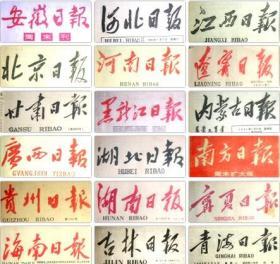 安徽日報
周末刊
河北日报
HEBEI RIBAO
江西日报
JIANGXI RIBAO
北京日报
河南日報
HENAN RIBAO
遼寧日報
LIAONING RIBAO
甘肃日報
GANSU RIBAO
黑龍江日報
内蒙古日报
廣西日報
GVANGJSIH YIZBAU
湖北日報
HUBEI RIBAO
南方日報
周末扩大版
贵州日報
GUIZHOU RIBAO
湖南日報
HUNAN RIBAO
寧夏日報
NINGXIA RIBAO
海南日報
HAINAN RIBAO
吉林日报
JILIN RIBAO
青海日報
QINGHAI RIBAO